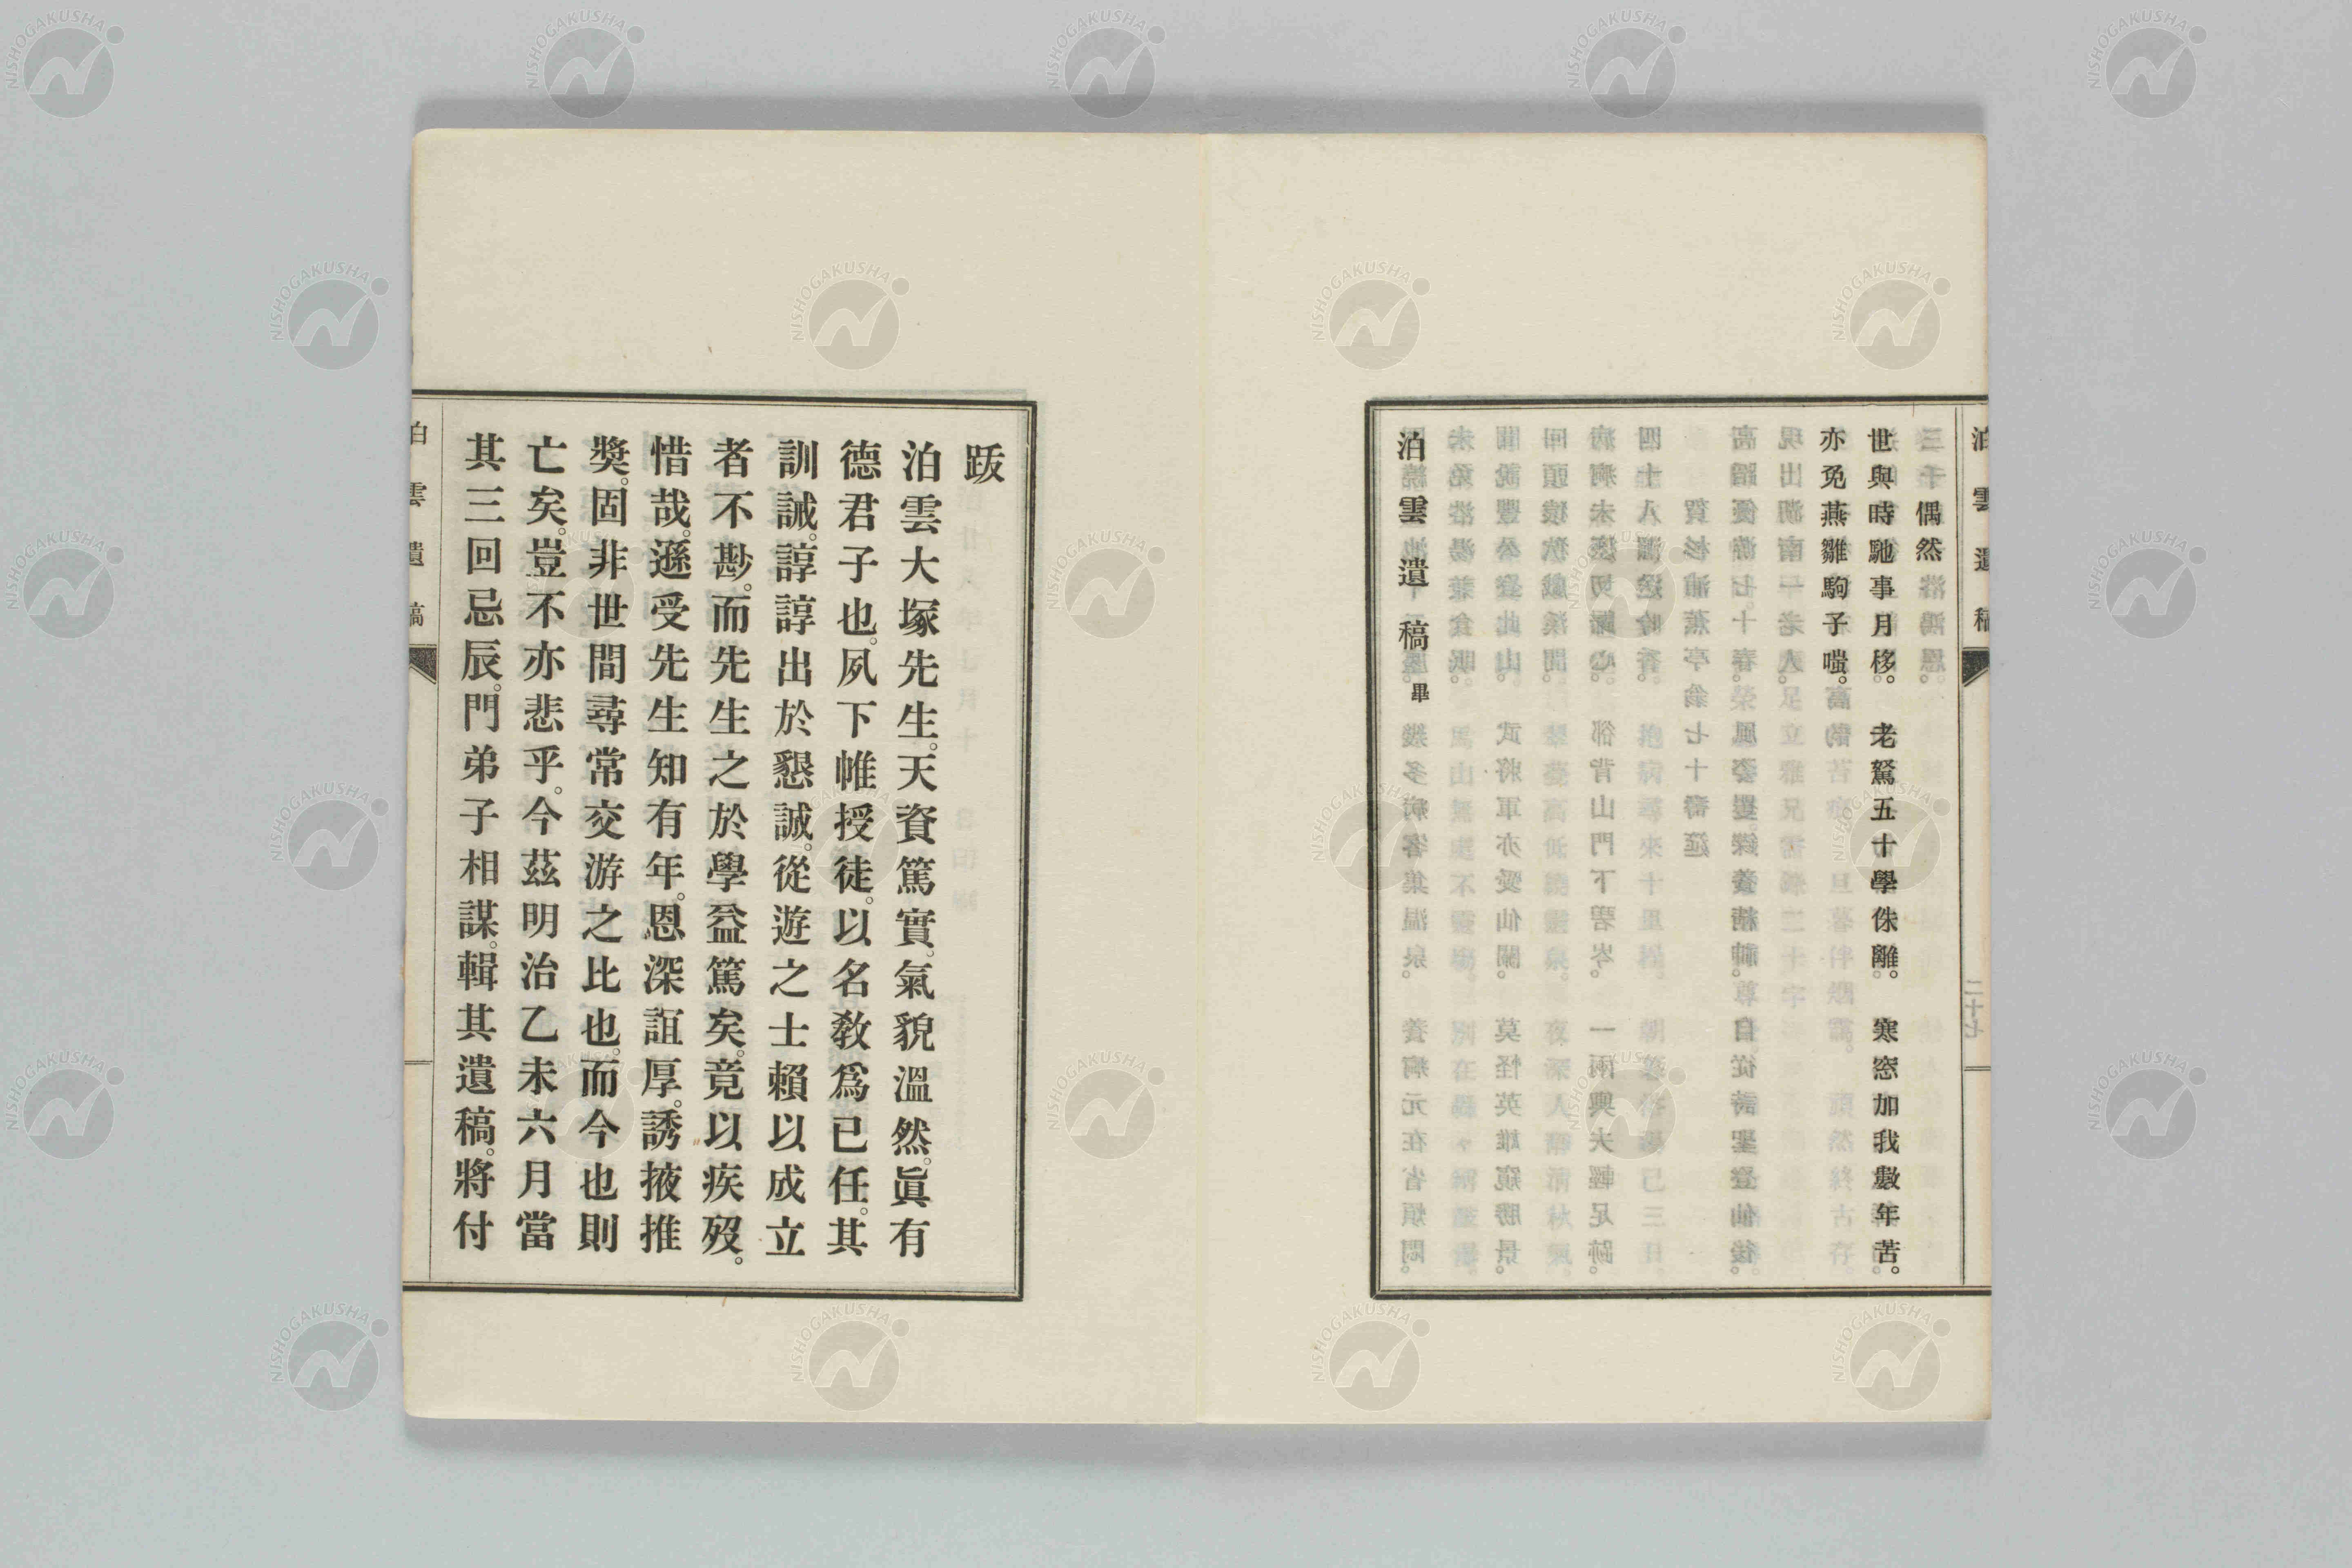 泊雲遺稿
偶然
世與時馳事月移。老駑五十學侏離。寒窓加我數年苦。
亦免燕雛駒子嗤。
泊雲遺稿畢
跋
泊雲大塚先生。天資篤實。氣貌溫然。眞有
德君子也。夙下帷授徒。以名敎爲已任。其
訓誡。諄諄出於懇誠。從遊之士賴以成立
者不尠。而先生之於學益篤矣。竟以疾歿。
惜哉。遜受先生知有年。恩深誼厚。誘掖推
奬。固非世間尋常交游之比也。而今也則
亡矣。豈不亦悲乎。今茲明治乙未六月當
其三回忌辰。門弟子相謀。輯其遺稿。將付
泊雲遺稿